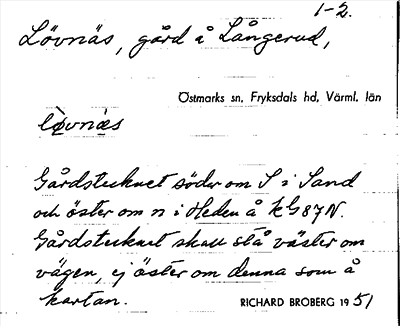 1-2.
Lövnäs, gård å Långerud,
Östmarks sn, Fryksdals hd, Värml. län
lövnäs
Gårdstecknet söder om S i Sand
och öster om n i Heden å kG87N.
Gårdstecknet skall stå väster om
vägen, ej öster om denna som å
kartan.
RICHARD BROBERG 1951